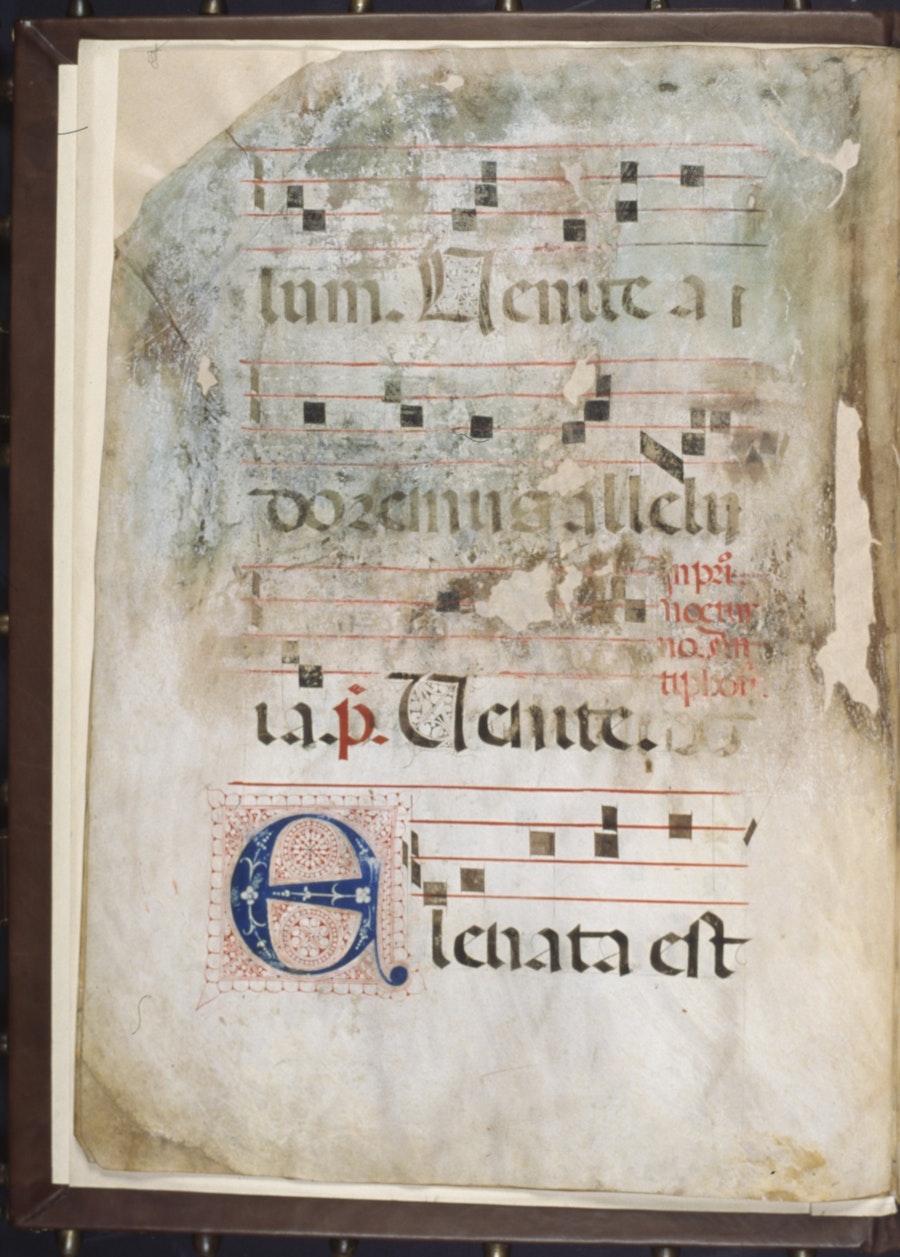 lum. Uenite a
doremus allelu
in pri
noctur
no. An
tiphon.
ia. p. Uenite.
Eleuata est